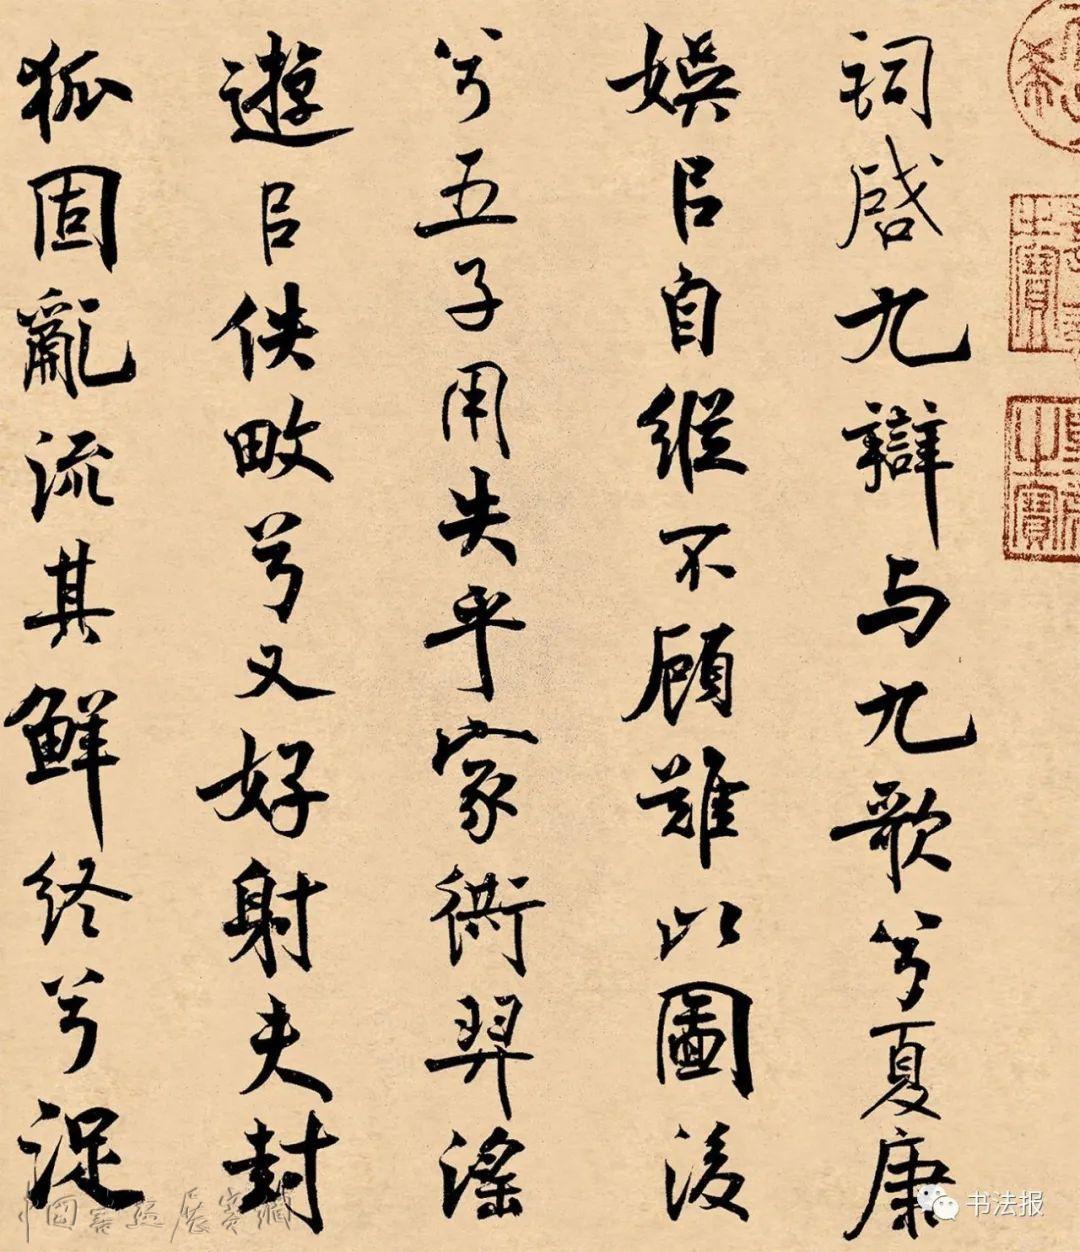 詞啓九辯与九歌兮夏康
娛㠯自縱不顧難以圖後
兮五子用失乎家衖羿滛
遊㠯佚畋兮又好射夫封
狐固亂流其鮮終兮浞
之寶
之寶
书法报